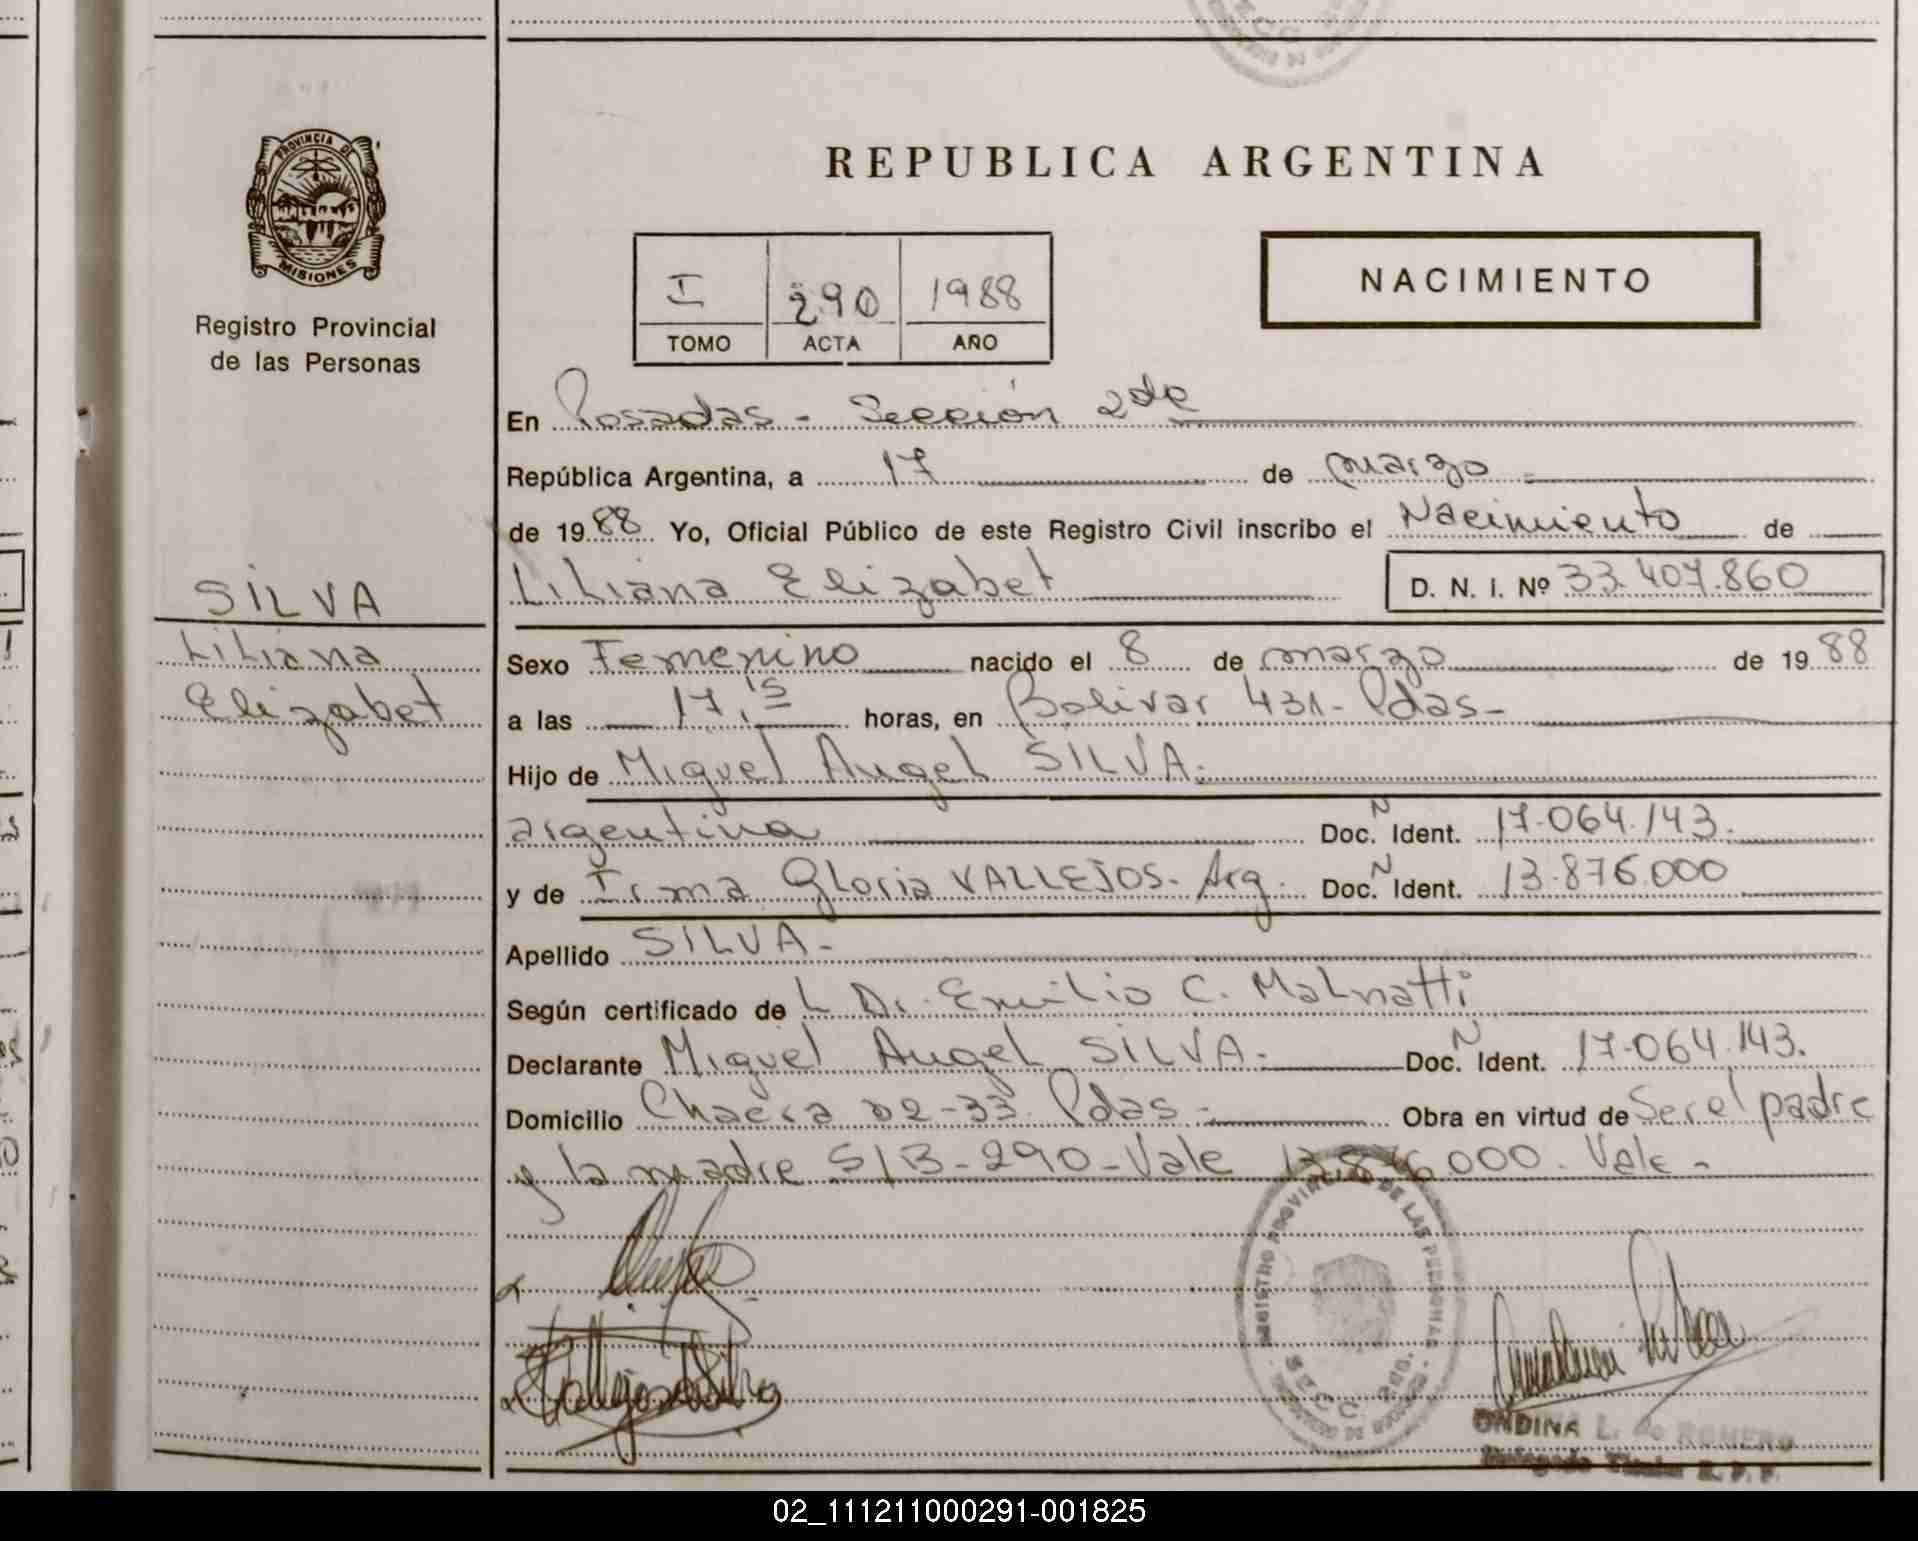 PROVINCIA DE
MISIONES
Registro Provincial
de las Personas
REPUBLICA ARGENTINA
I 290 1988
TOMO ACTA AÑO
NACIMIENTO
En Posadas - Sección 2da
República Argentina, a 17 de marzo
de 1988 Yo, Oficial Público de este Registro Civil inscribo el Nacimiento de
Liliana Elizabet D. N. I. Nº 33.407.860
SILVA
Liliana
Elizabet
Sexo Femenino nacido el 8 de marzo de 1988
a las 17,15 horas, en Bolivar 431 - Pdas -
Hijo de Miguel Angel SILVA.
argentina Doc. N Ident. 17.064.143.
y de Irma Gloria VALLEJOS - Arg. Doc. N Ident. 13.876.000
Apellido SILVA -
Según certificado de L Dr. Emilio C. Malnatti
Declarante Miguel Angel SILVA - Doc. N Ident. 17.064.143.
Domicilio Chacra 32-33 Pdas - Obra en virtud de Ser el padre
y la madre S/B - 290 - Vale 13.876.000. Vale -
REGISTRO PROVINCIAL DE LAS PERSONAS
SECC. 2da.
ONDINA L. de ROMERO
02_111211000291-001825